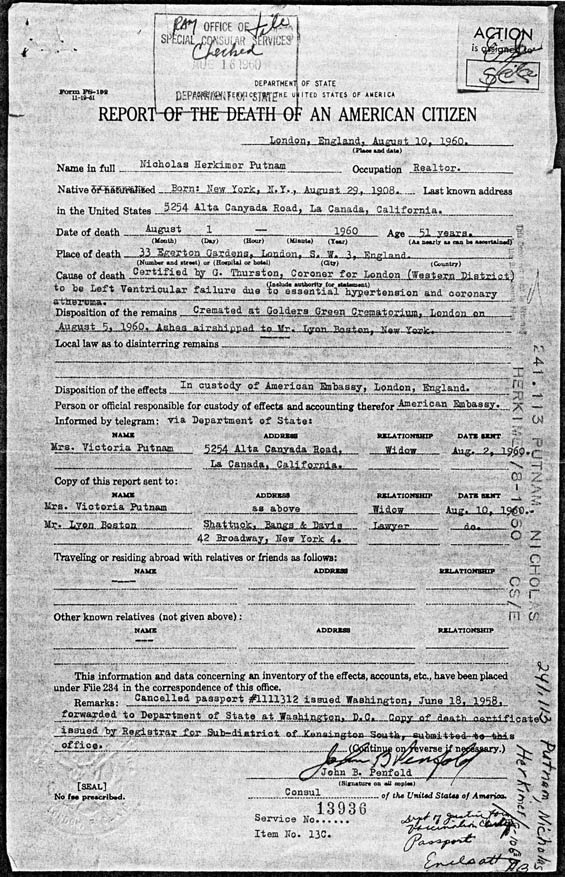 RM OFFICE OF file
SPECIAL CONSULAR SERVICES
Checked
AUG 16 1960
DEPARTMENT OF STATE
ACTION
is assigned to
SCS
Form FS-192
DEPARTMENT OF STATE
FOREIGN SERVICE OF THE UNITED STATES OF AMERICA
REPORT OF THE DEATH OF AN AMERICAN CITIZEN
London, England, August 10, 1960.
(Place and date)
Name in full Nicholas Herkimer Putnam Occupation Realtor.
Native or naturalized Born: New York, N.Y., August 29, 1908. Last known address
in the United States 5254 Alta Canyada Road, La Canada, California.
Date of death August 1 — 1960 Age 51 years.
(Month) (Day) (Hour) (Minute) (Year) (As nearly as can be ascertained)
Place of death 33 Egerton Gardens, London, S. W. 3, England.
(Number and street) or (Hospital or hotel) (City) (Country)
Cause of death Certified by G. Thurston, Coroner for London (Western District)
(Include authority for statement)
to be Left Ventricular failure due to essential hypertension and coronary
atheroma.
Disposition of the remains Cremated at Golders Green Crematorium, London on
August 5, 1960. Ashes airshipped to Mr. Lyon Boston, New York.
Local law as to disinterring remains
Disposition of the effects In custody of American Embassy, London, England.
Person or official responsible for custody of effects and accounting therefor American Embassy.
Informed by telegram: via Department of State:
NAME ADDRESS RELATIONSHIP DATE SENT
Mrs. Victoria Putnam 5254 Alta Canyada Road, Widow Aug. 2, 1960.
La Canada, California.
Copy of this report sent to:
NAME ADDRESS RELATIONSHIP DATE SENT
Mrs. Victoria Putnam as above Widow Aug. 10, 1960.
Mr. Lyon Boston Shattuck, Bangs & Davis Lawyer do.
42 Broadway, New York 4.
Traveling or residing abroad with relatives or friends as follows:
NAME ADDRESS RELATIONSHIP
Other known relatives (not given above):
NAME ADDRESS RELATIONSHIP
This information and data concerning an inventory of the effects, accounts, etc., have been placed
under File 234 in the correspondence of this office.
Remarks: Cancelled passport #1111312 issued Washington, June 18, 1958,
forwarded to Department of State at Washington, D.C. Copy of death certificate
issued by Registrar for Sub-district of Kensington South, submitted to this
office. (Continue on reverse if necessary.)
John B Penfold
John B. Penfold
(Signature on all copies)
[SEAL]
No fee prescribed.
Consul of the United States of America.
Service No. 13936
Item No. 13C.
Passport
241.113 PUTNAM, NICHOLAS
HERKIMER/8-1060 CS/E
241.113 Putnam, Nicholas
Herkimer